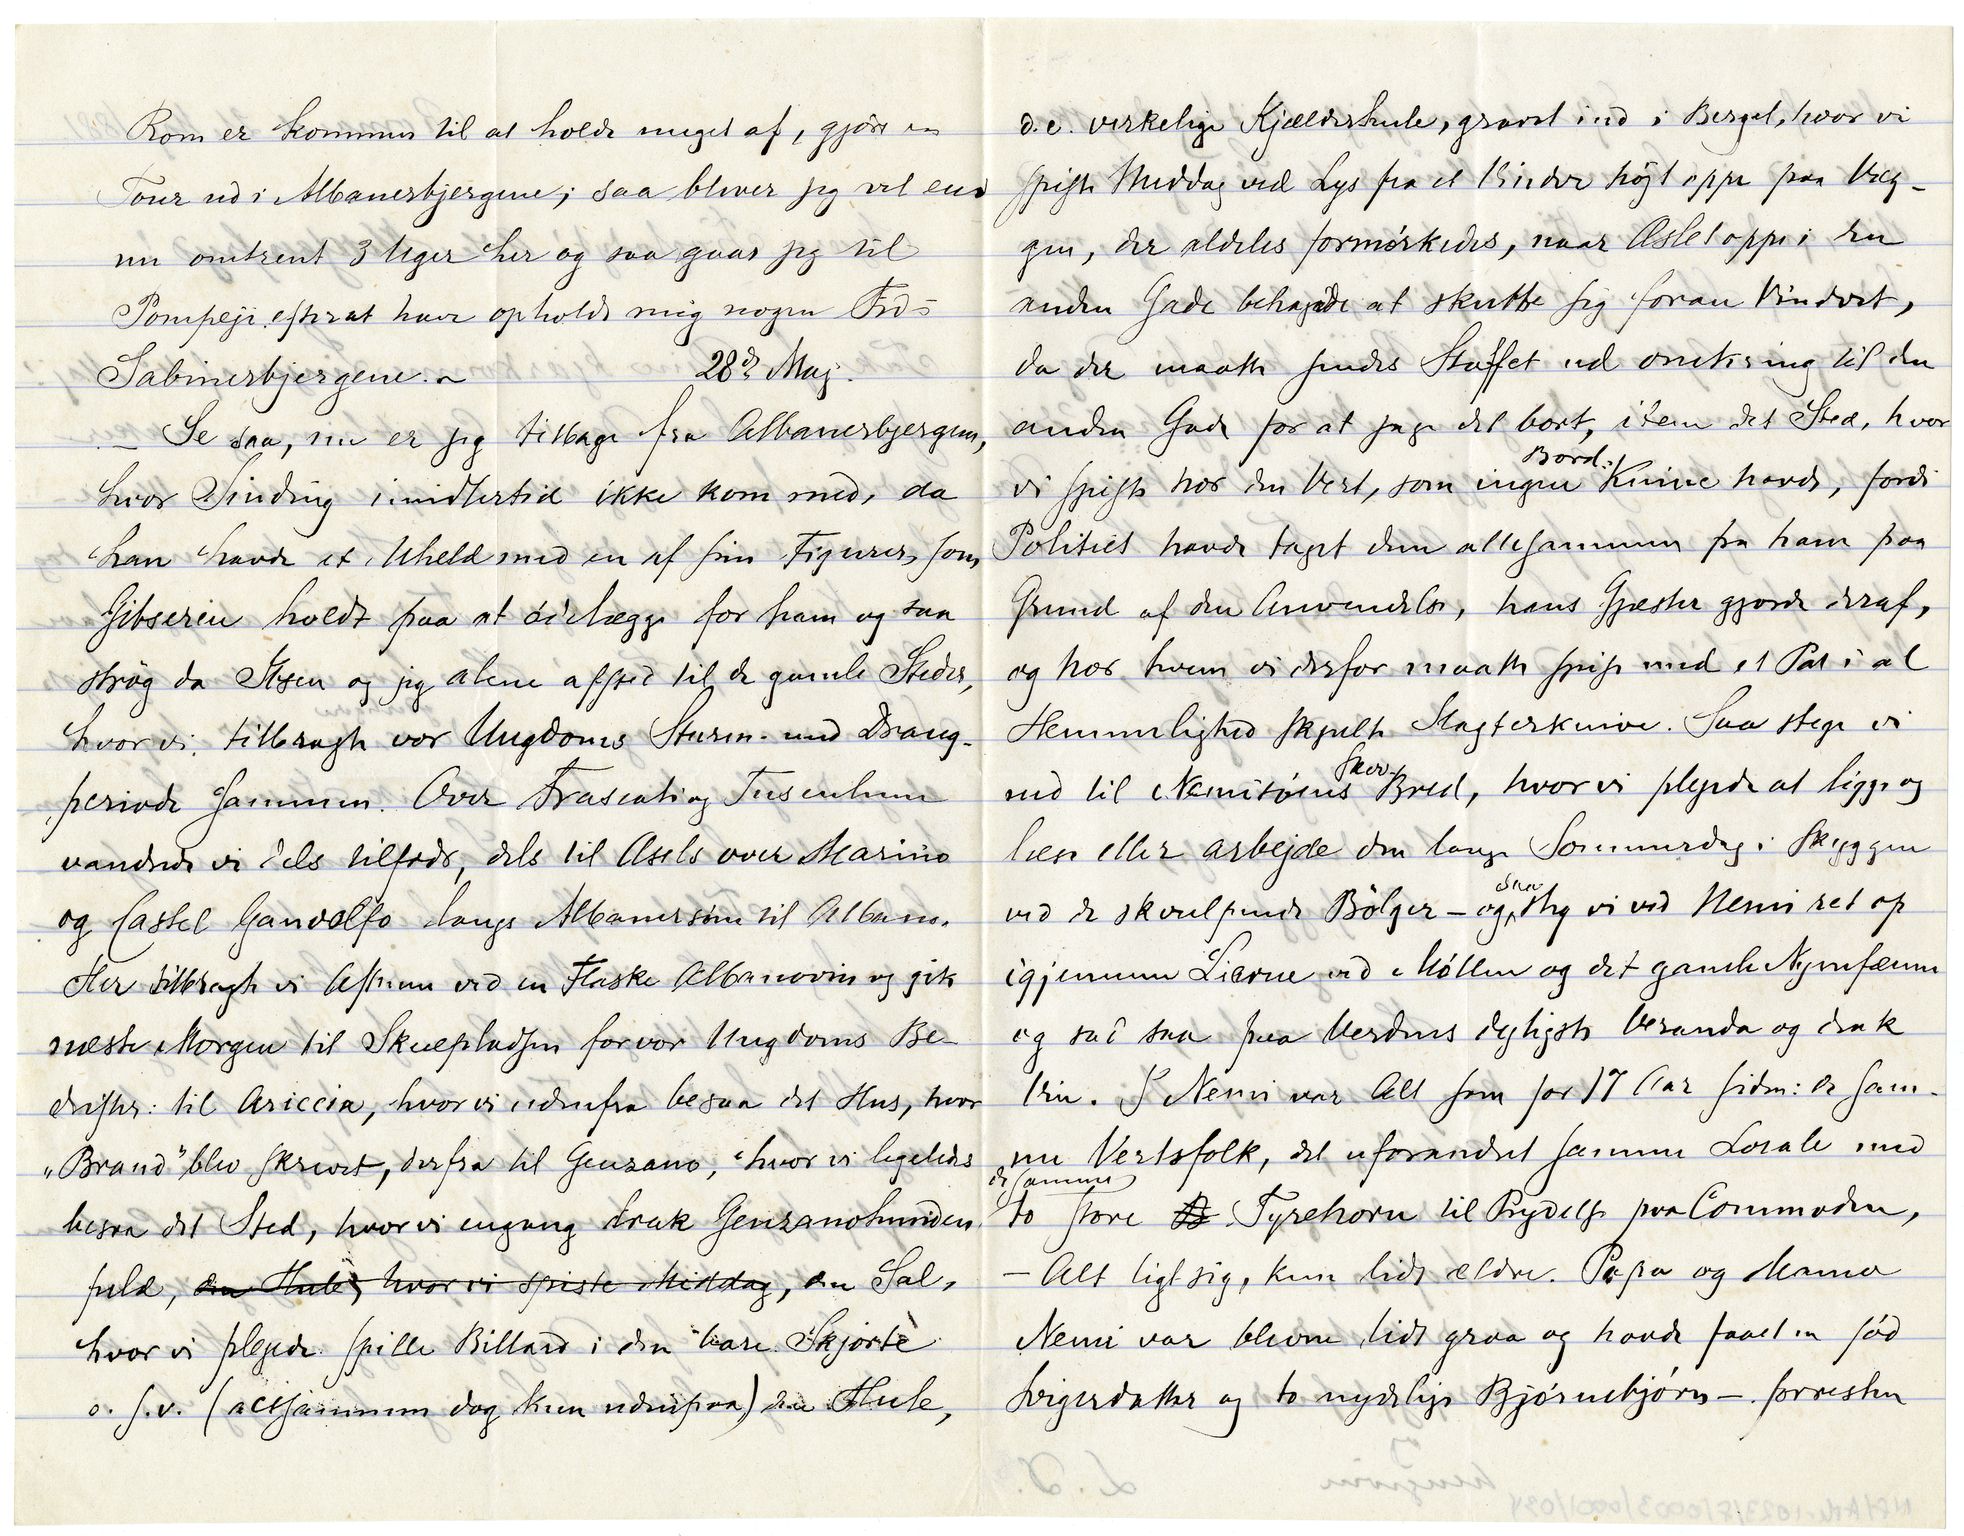 Rom er kommen til at holde meget af, gjøre en
Tour ud i Albanerbjergene; saa bliver jeg vel end
nu omtrent 3 Uger her og saa gaar jeg til
Pompeji efter at have opholdt mig nogen Tid i
Sabinerbjergene. 28de Maj.
— Se saa, nu er jeg tilbage fra Albanerbjergene,
hvor Sinding imidlertid ikke kom med, da
han havde et Uheld med en af sine Figurer, som
Gibseren holdt paa at ødelægge for ham og saa
strøg da Ibsen og jeg alene afsted til de gamle Steder,
hvor vi tilbragte vor Ungdoms Sturm- und Drang-
periode sammen. Over Frascati og Tusculum
vandrede vi dels tilfods, dels til Æsels over Marino
og Castel Gandolfo langs Albanersøen til Albano.
Her tilbragte vi Aftenen ved en Flaske Albanovin og gik
næste Morgen til Skuepladsen for vor Ungdoms Be-
drifter: til Ariccia, hvor vi udenfra besaa det Hus, hvor
"Brand" blev skrevet, derfra til Genzano, hvor vi ligeledes
besaa det Sted, hvor vi engang drak Genzanohunden
fuld, den Hule, hvor vi spiste Middag, den Sal,
hvor vi plejede spille Billard i den bare Skjorte
o.s.v. (altsammen dog kun udenfra) den Hule,
d.e. virkelige Kjælderhule, gravet ind i Berget, hvor vi
spiste Middag ved Lys fra et Vindve højt oppe paa Væg-
gen, der aldeles formørkedes, naar Æslet oppe i den
anden Gade behagede at skubbe sig foran Vindvet,
da der maatte sendes Staffet ud omkring til den
anden Gade for at jage det bort, item det Sted, hvor
vi spiste hos den Vert, som ingen Bord-Knive havde, fordi
Politiet havde taget dem allesammen fra ham paa
Grund af den Anvendelse, hans Gjæster gjorde deraf,
og hos hvem vi derfor maatte spise med et Par i al
Hemmelighed skjulte Slagterknive. Saa stege vi
ned til Nemisøens skov-Bred, hvor vi plejede at ligge og
læse eller arbejde den lange Sommerdag i Skyggen
ved de skvulpende Bølger — og steg vi ved Nemi ret op
igjennem Lierne ved Møllen og det gamle Nymfæum
og sad saa paa Verdens dejligste Veranda og drak
Vin. I Nemi var Alt som for 17 Aar siden: de sam-
me Vertsfolk, det uforandret samme Locale med
de samme to store Tyrehorn til Prydelse paa Commoden,
— Alt ligt sig, kun lidt ældre. Papa og Mama
Nemi var blevne lidt graa og havde faaet en sød
Svigerdatter og to nydelige Bjørnebjørn — forresten